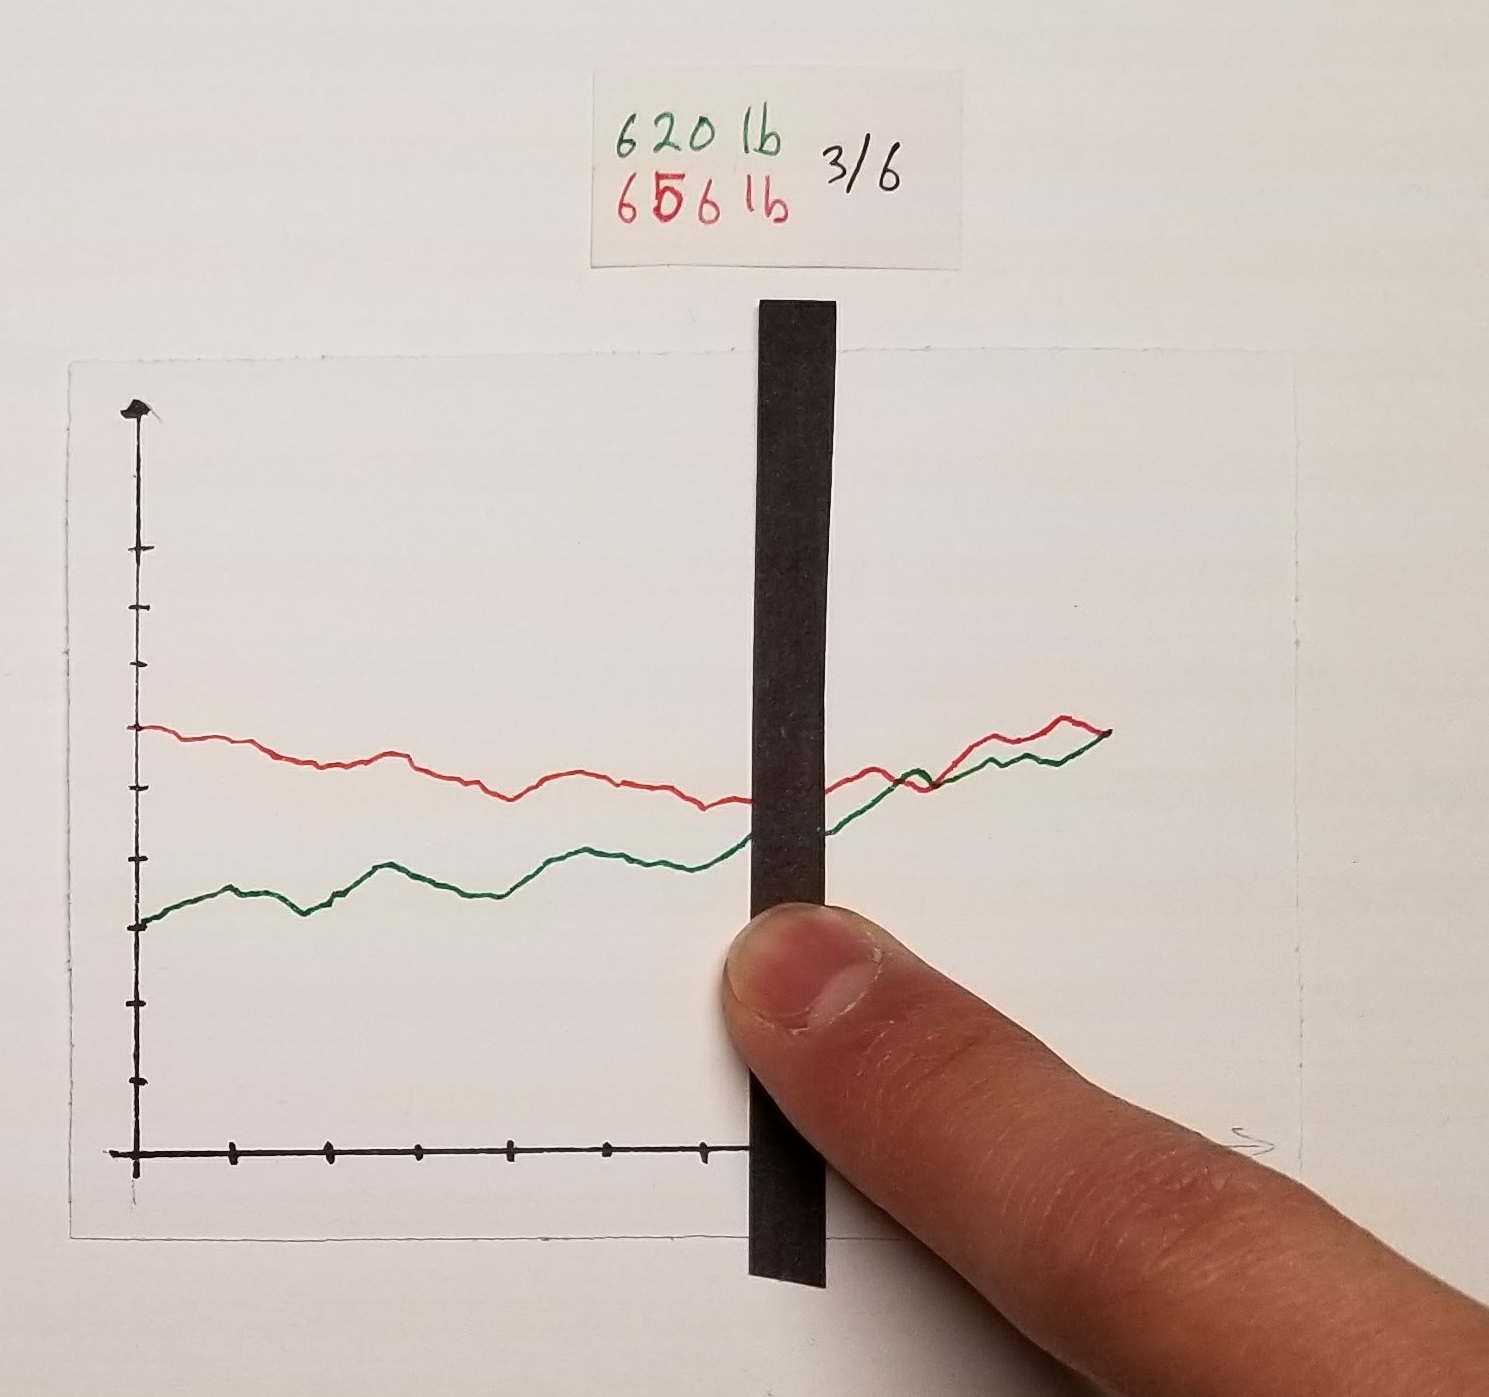 620 lb
656 lb
3/6